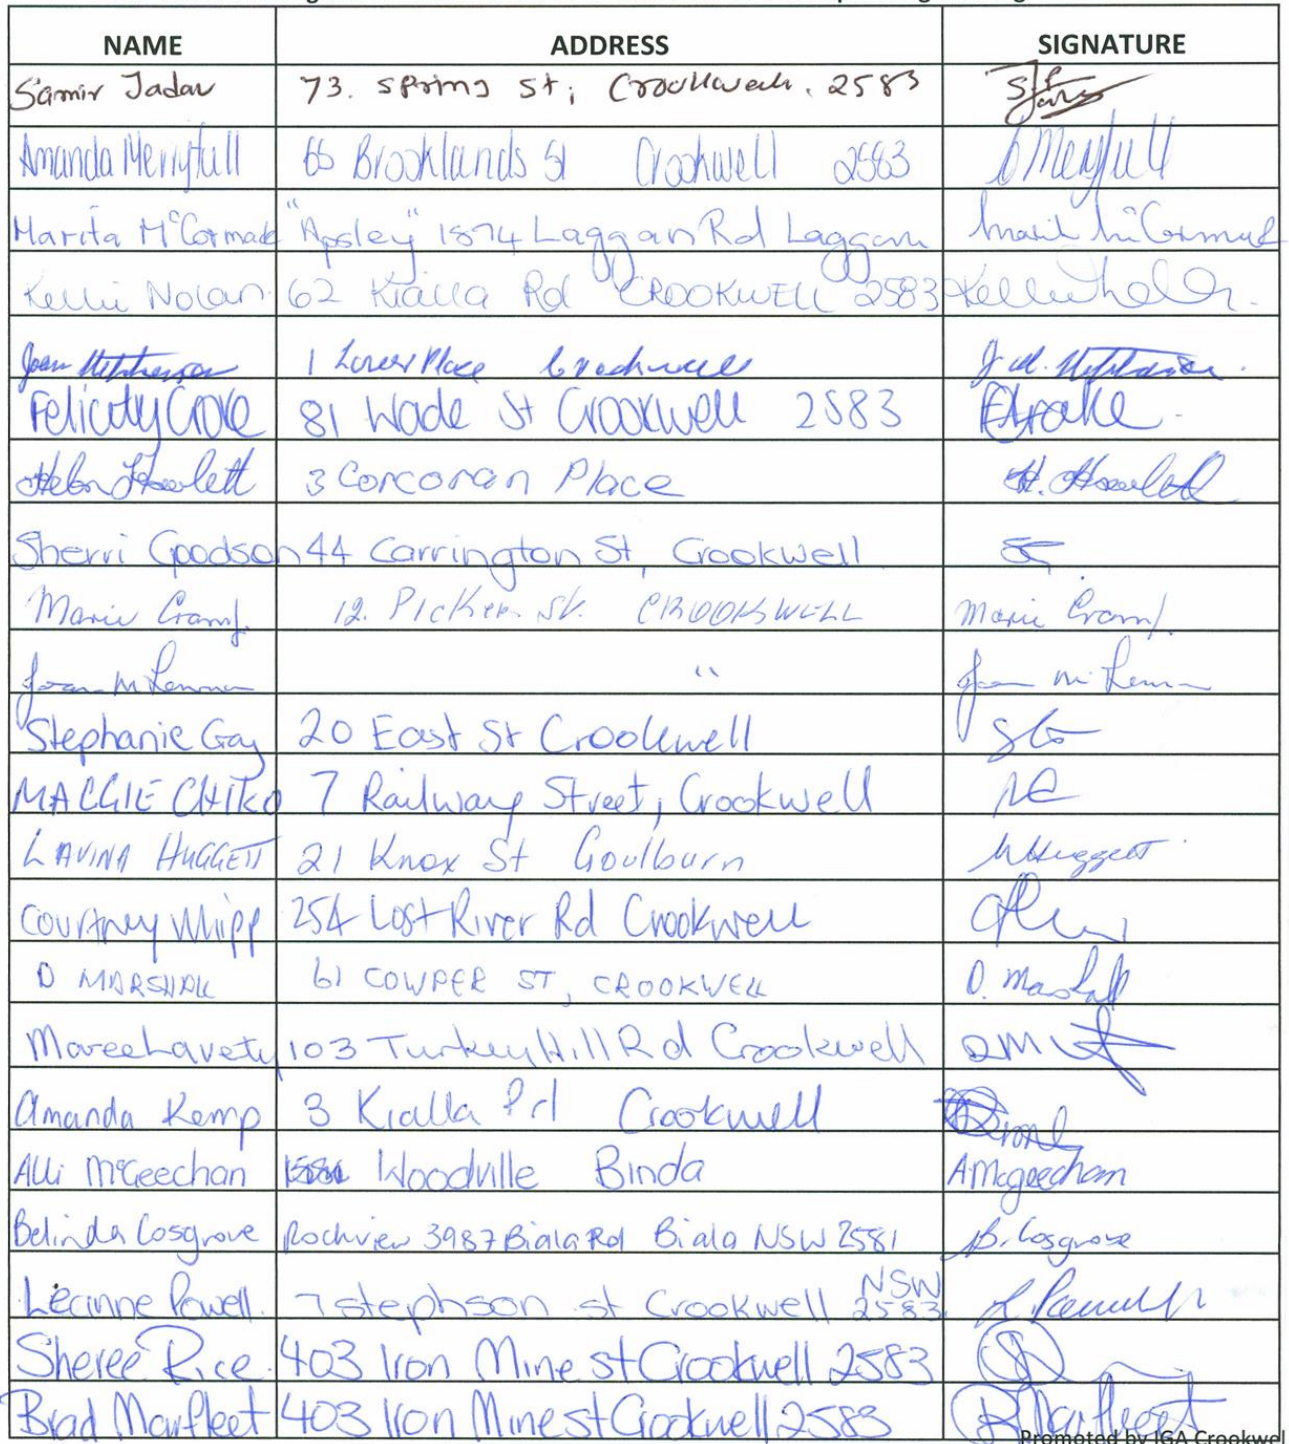 NAME ADDRESS SIGNATURE
Samir Jadav 73. Spring St, Crookwell. 2583
Amanda Merryfull 65 Brooklands St Crookwell 2583 A Merryfull
Marita McCormack "Apsley" 1874 Laggan Rd Laggan Marit McCormack
Kellie Nolan 62 Kialla Rd CROOKWELL 2583 Kellie Nolan
Joan 1 Lower Place Crookwell
Felicity Croke 81 Wade St Crookwell 2583 FCroke
Helen Howlett 3 Corcoran Place H. Howlett
Sherri Goodson 44 Carrington St, Crookwell
Marie Cramp. 12. Picker St. CROOKWELL Marie Cramp.
Joan McLennan " Joan McLennan
Stephanie Gay 20 East St Crookwell SG
MAGGIE CHITKO 7 Railway Street, Crookwell
LAVINA HUGGETT 21 Knox St Goulburn LHuggett
Courtney Whipp 254 Lost River Rd Crookwell
D MARSHALL 61 COWPER ST, CROOKWELL D. Marshall
Maree Laverty 103 Turkey Hill Rd Crookwell
Amanda Kemp 3 Kialla Rd Crookwell
Alli McGeechan Woodville Binda AMcgeechan
Belinda Cosgrove Rockview 3987 Biala Rd Biala NSW 2581 B. Cosgrove
Leanne Powell. 7 stephson st Crookwell NSW 2583 L Powell
Sheree Rice. 403 Iron Mine st Crookwell 2583
Brad Marfleet 403 Iron Mine st Crookwell 2583 B Marfleet
Promoted by IGA Crookwel